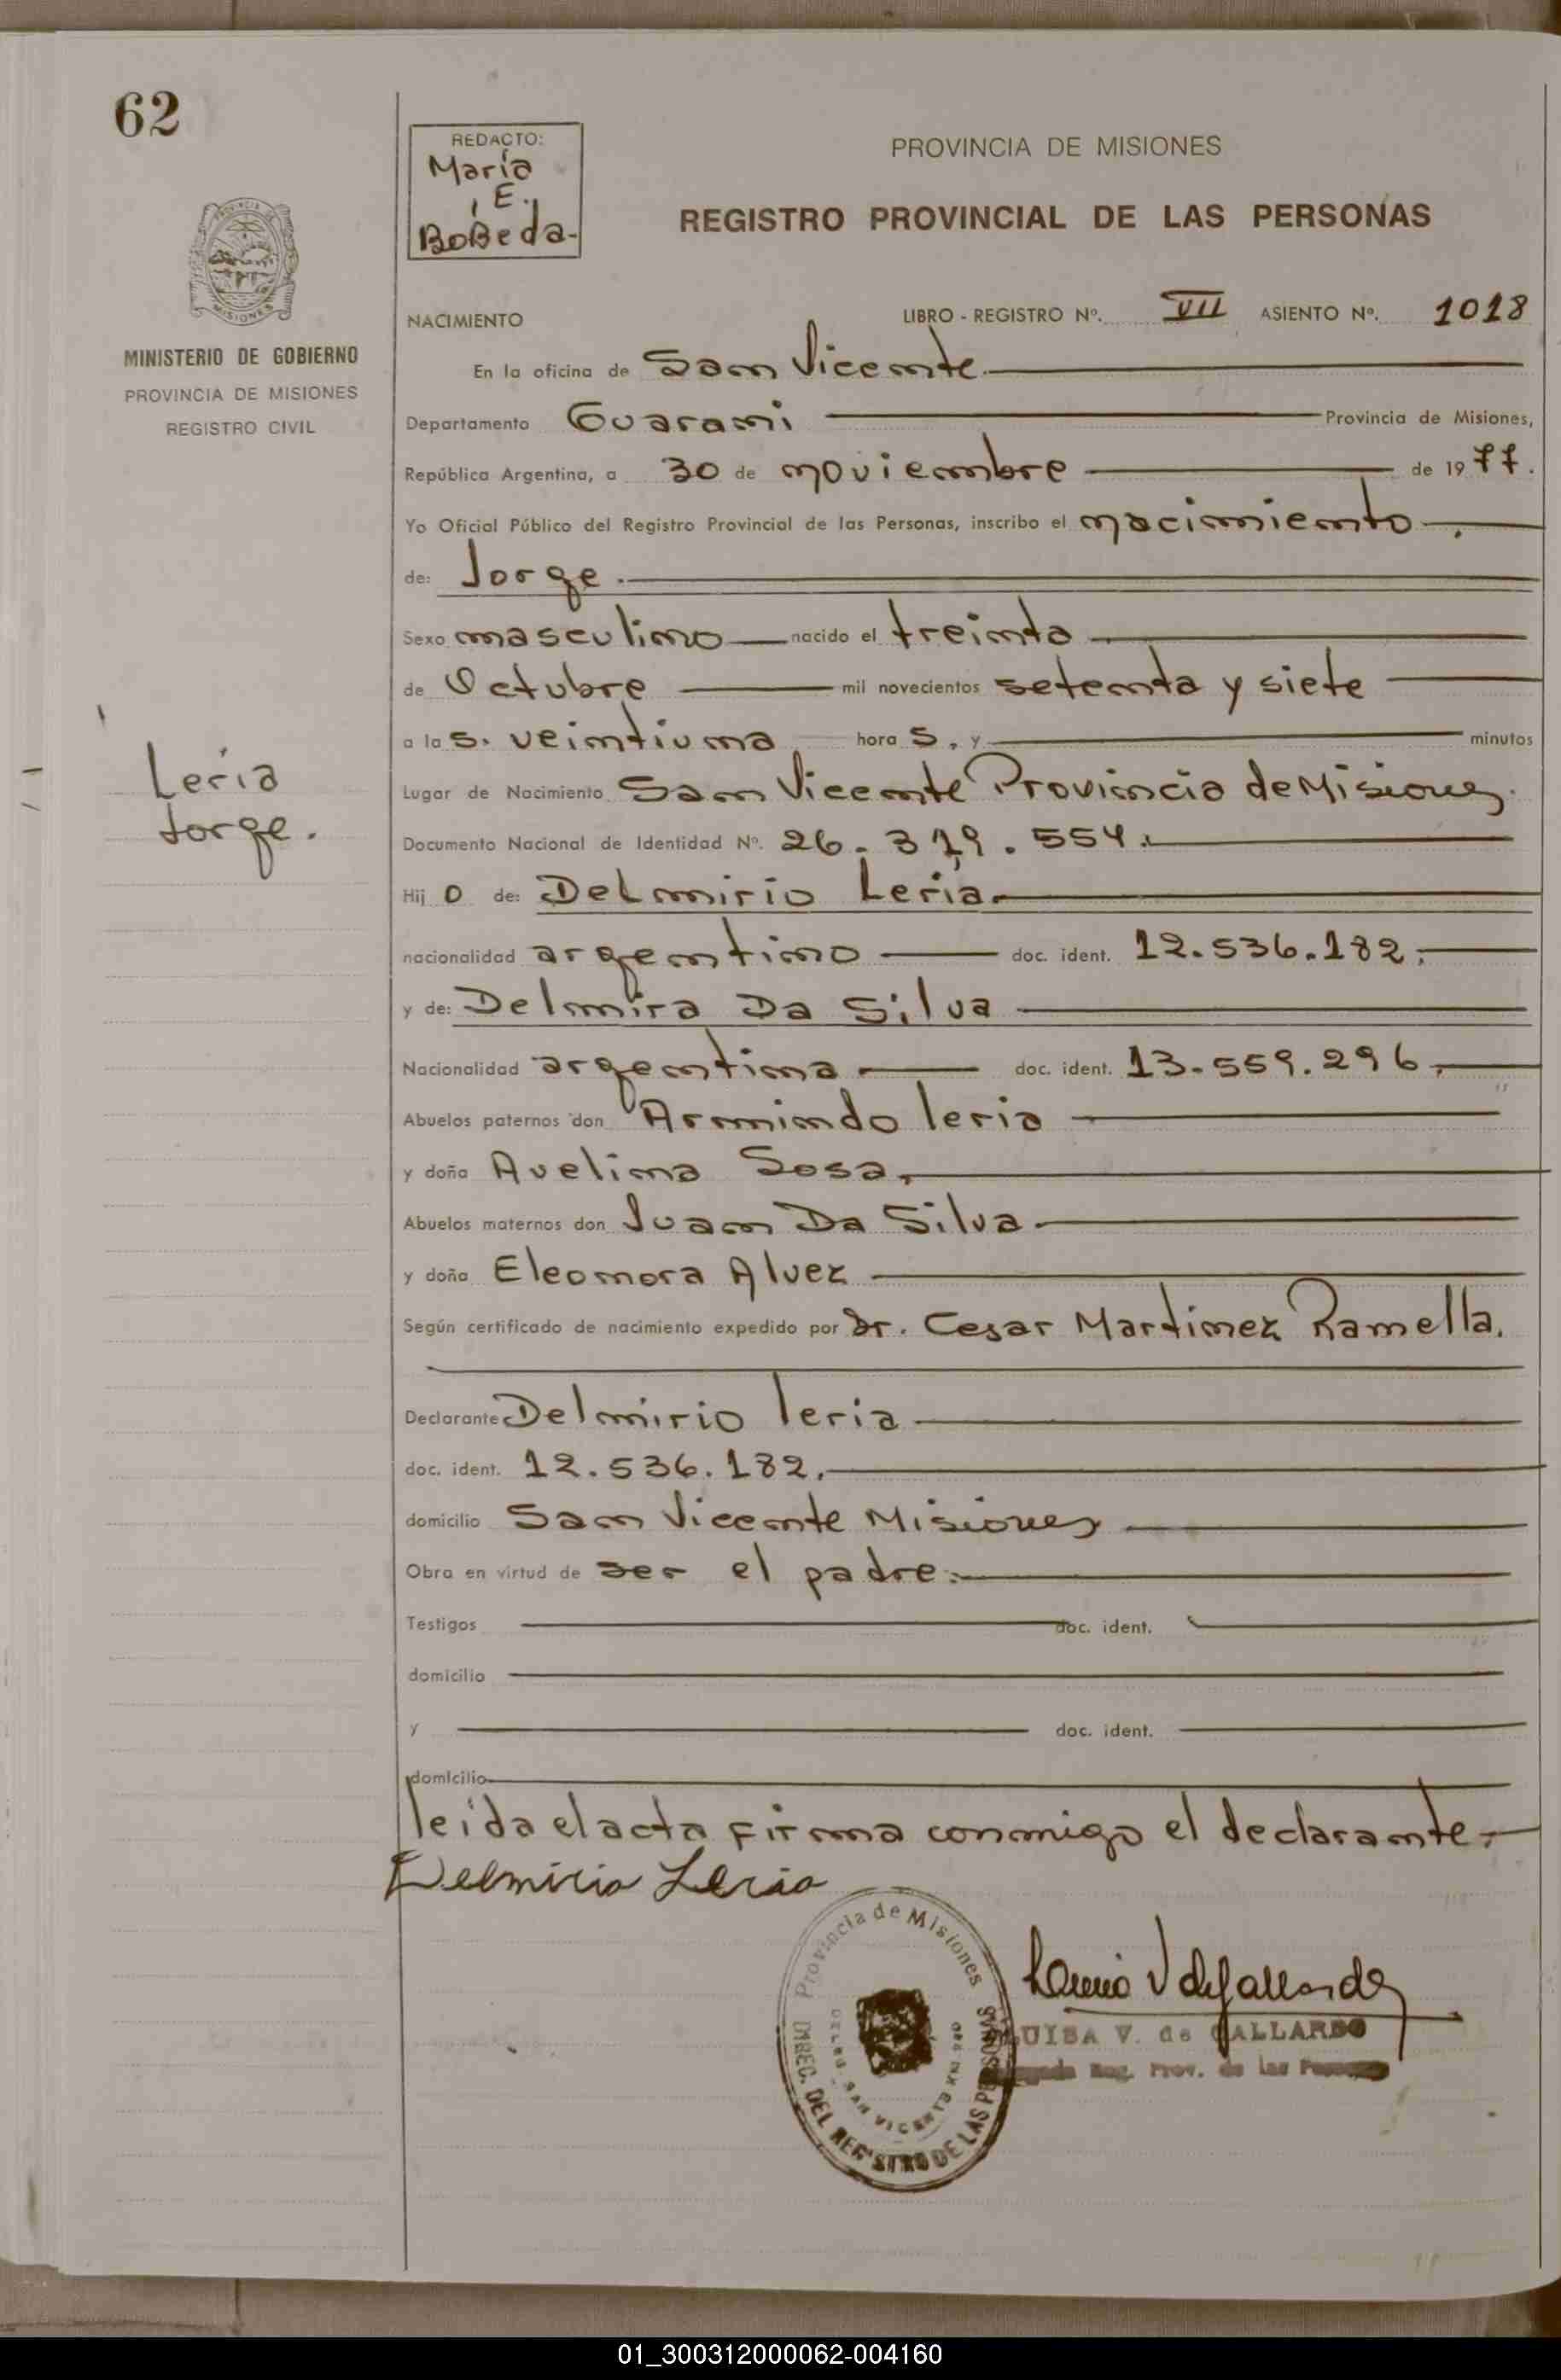 62
REDACTO:
María
E.
BoBeda-
PROVINCIA DE MISIONES
REGISTRO PROVINCIAL DE LAS PERSONAS
PROVINCIA DE
MISIONES
MINISTERIO DE GOBIERNO
PROVINCIA DE MISIONES
REGISTRO CIVIL
NACIMIENTO
LIBRO - REGISTRO Nº. VII ASIENTO Nº. 1018
En la oficina de San Vicente.
Departamento Guarani Provincia de Misiones,
República Argentina, a 30 de noviembre de 1977.
Yo Oficial Público del Registro Provincial de las Personas, inscribo el nacimiento.
de: Jorge.
Sexo masculino nacido el treinta
de Octubre mil novecientos setenta y siete
a las. veintiuna horas. y minutos
Leria
Jorge.
Lugar de Nacimiento San Vicente Provincia de Misiones.
Documento Nacional de Identidad Nº. 26.319.554.
Hijo de: Delmirio Leria.
nacionalidad argentino doc. ident. 12.536.182.
y de: Delmira Da Silva
Nacionalidad argentina doc. ident. 13.559.296.
Abuelos paternos don Armindo leria
y doña Avelina Sosa.
Abuelos maternos don Juan Da Silva
y doña Eleonora Alvez
Según certificado de nacimiento expedido por Dr. Cesar Martinez Ramella.
Declarante Delmirio leria
doc. ident. 12.536.182.
domicilio San Vicente Misiones
Obra en virtud de ser el padre.
Testigos doc. ident.
domicilio
y doc. ident.
domicilio
leida el acta firma conmigo el declarante.
Delmirio Leria
Provincia de Misiones
DIREC. DEL REGISTRO DE LAS PERSONAS
SAN VICENTE
LUISA V. de GALLARDO
Reg. Prov. de las
01_300312000062-004160